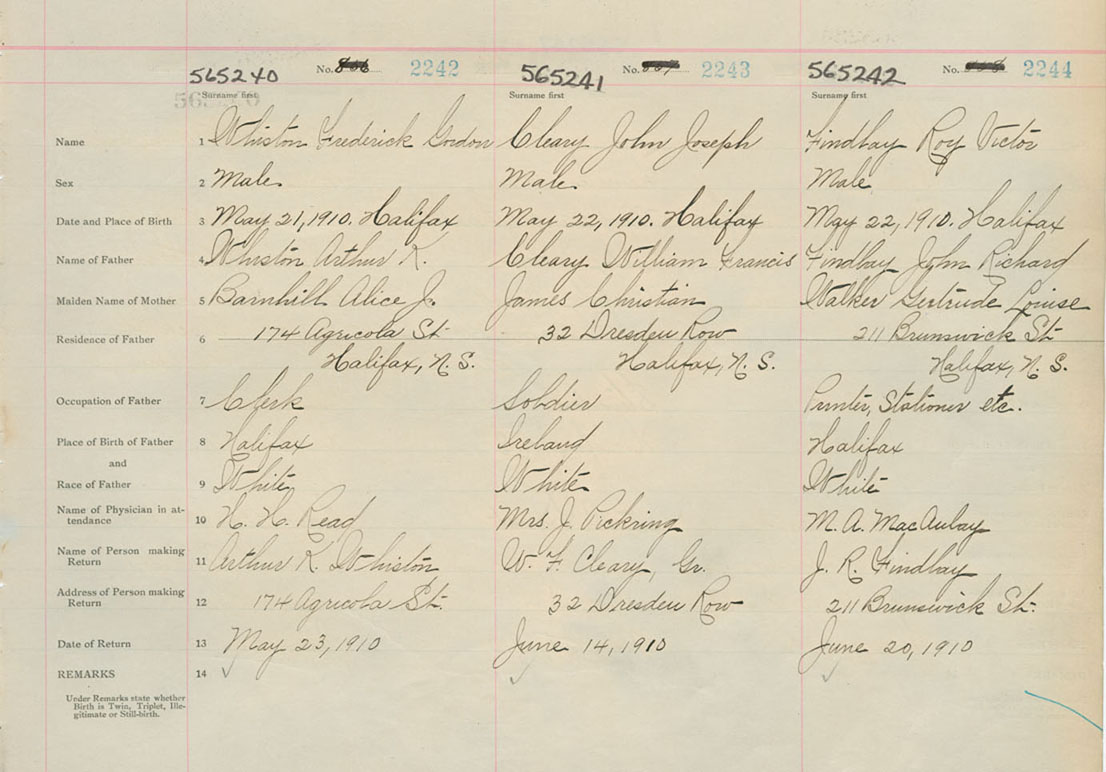 565240 No. 2242 565241 No. 2243 565242 No. 2244
Surname first Surname first Surname first
Name 1 Whiston Frederick Gordon Cleary John Joseph Findlay Roy Victor
Sex 2 Male Male Male
Date and Place of Birth 3 May 21, 1910. Halifax May 22, 1910. Halifax May 22, 1910. Halifax
Name of Father 4 Whiston Arthur K. Cleary William Francis Findlay John Richard
Maiden Name of Mother 5 Barnhill Alice J. James Christian Walker Gertrude Louise
Residence of Father 6 174 Agricola St. 32 Dresden Row 211 Brunswick St.
Halifax, N. S. Halifax, N. S. Halifax, N. S.
Occupation of Father 7 Clerk Soldier Printer, Stationer etc.
Place of Birth of Father 8 Halifax Ireland Halifax
and
Race of Father 9 White White White
Name of Physician in at-
tendance 10 H. H. Read Mrs. J. Pickring M. A. MacAulay
Name of Person making
Return 11 Arthur K. Whiston W. F. Cleary, Gr. J. R. Findlay
Address of Person making
Return 12 174 Agricola St. 32 Dresden Row 211 Brunswick St.
Date of Return 13 May 23, 1910 June 14, 1910 June 20, 1910
REMARKS 14
Under Remarks state whether
Birth is Twin, Triplet, Ille-
gitimate or Still-birth.